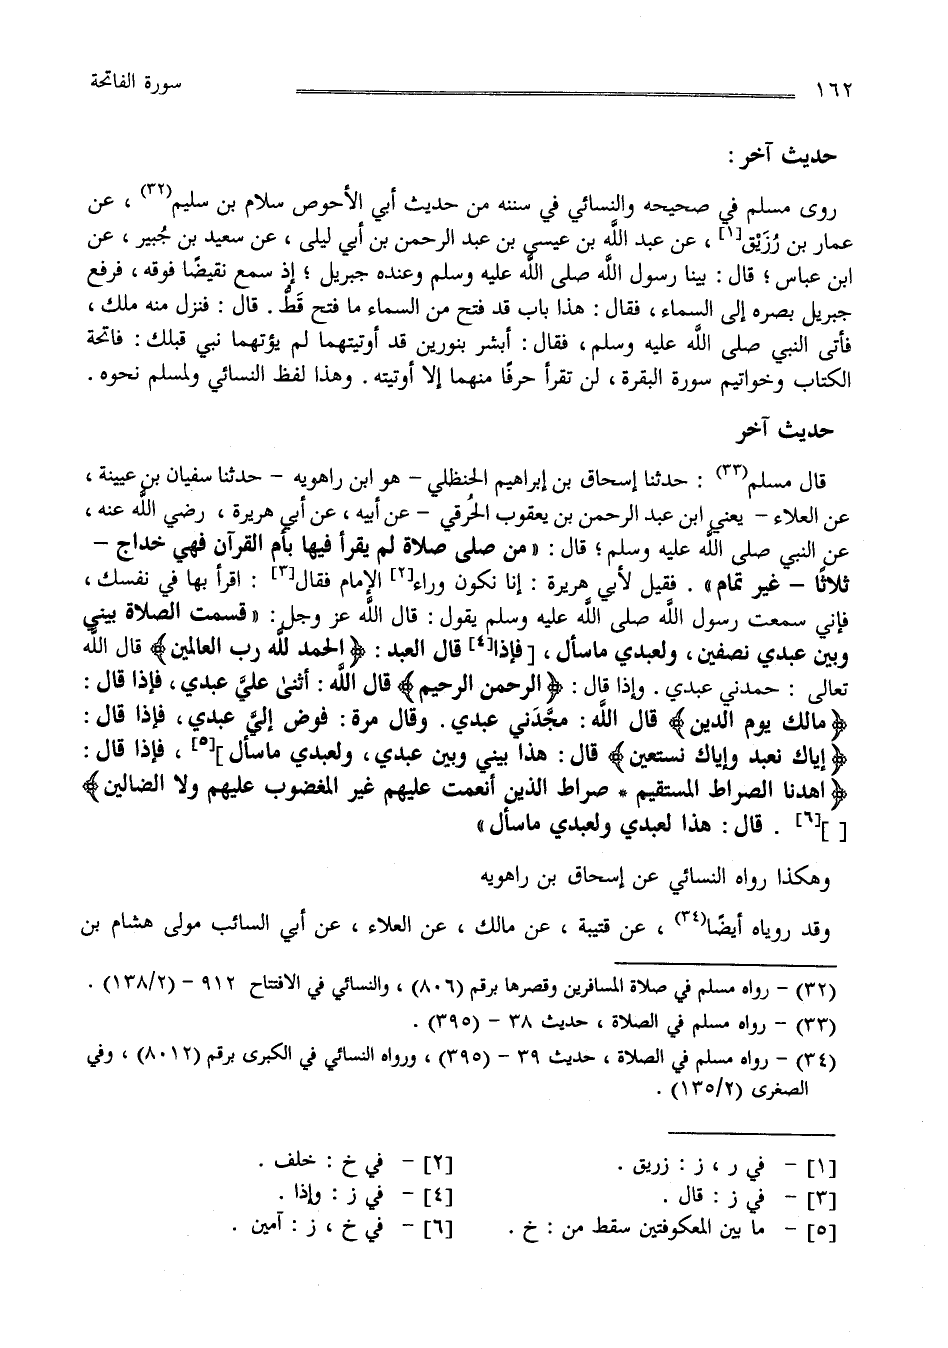 ١٦٢ سورة الفاتحة
حديث آخر :
روى مسلم في صحيحه والنسائي في سننه من حديث أبي الأحوص سلام بن سليم(٣٢) ، عن
عمار بن رُزَيْق[١] ، عن عبد اللَّه بن عيسى بن عبد الرحمن بن أبي ليلى ، عن سعيد بن جُبير ، عن
ابن عباس ؛ قال : بينا رسول اللَّه صلى اللَّه عليه وسلم وعنده جبريل ؛ إذ سمع نقيضًا فوقه ، فرفع
جبريل بصره إلى السماء ، فقال : هذا باب قد فتح من السماء ما فتح قَطُّ . قال : فنزل منه ملك ،
فأتى النبي صلى اللَّه عليه وسلم ، فقال : أبشر بنورين قد أوتيتهما لم يؤتهما نبي قبلك : فاتحة
الكتاب وخواتيم سورة البقرة ، لن تقرأ حرفًا منهما إلا أوتيته . وهذا لفظ النسائي ولمسلم نحوه .
حديث آخر
قال مسلم(٣٣) : حدثنا إسحاق بن إبراهيم الحنظلي – هو ابن راهويه – حدثنا سفيان بن عيينة ،
عن العلاء – يعني ابن عبد الرحمن بن يعقوب الحُرقي – عن أبيه ، عن أبي هريرة ، رضي اللَّه عنه ،
عن النبي صلى اللَّه عليه وسلم ؛ قال : « من صلى صلاة لم يقرأ فيها بأم القرآن فهي خداج –
ثلاثًا – غير تمام » . فقيل لأبي هريرة : إنا نكون وراء[٢] الإمام فقال[٣] : اقرأ بها في نفسك ،
فإني سمعت رسول اللَّه صلى اللَّه عليه وسلم يقول : قال اللَّه عز وجل : « قسمت الصلاة بيني
وبين عبدي نصفين ، ولعبدي ماسأل ، [ فإذا[٤] قال العبد : ﴿ الحمد للَّه رب العالمين ﴾ قال اللَّه
تعالى : حمدني عبدي . وإذا قال : ﴿ الرحمن الرحيم ﴾ قال اللَّه : أثنىٰ عليَّ عبدي ، فإذا قال :
﴿ مالك يوم الدين ﴾ قال اللَّه : مجَّدَني عبدي . وقال مرة : فوض إليَّ عبدي ، فإذا قال :
﴿ إياك نعبد وإياك نستعين ﴾ قال : هذا بيني وبين عبدي ، ولعبدي ماسأل ][٥] ، فإذا قال :
﴿ اهدنا الصراط المستقيم * صراط الذين أنعمت عليهم غير المغضوب عليهم ولا الضالين ﴾
[ ][٦] . قال : هذا لعبدي ولعبدي ماسأل »
وهكذا رواه النسائي عن إسحاق بن راهويه
وقد روياه أيضًا(٣٤) ، عن قتيبة ، عن مالك ، عن العلاء ، عن أبي السائب مولى هشام بن
(٣٢) – رواه مسلم في صلاة المسافرين وقصرها برقم (٨٠٦) ، والنسائي في الافتتاح ٩١٢ – (١٣٨/٢) .
(٣٣) – رواه مسلم في الصلاة ، حديث ٣٨ – (٣٩٥) .
(٣٤) – رواه مسلم في الصلاة ، حديث ٣٩ – (٣٩٥) ، ورواه النسائي في الكبرى برقم (٨٠١٢) ، وفي
الصغرى (١٣٥/٢) .
[١] – في ر ، ز : زريق . [٢] – في خ : خلف .
[٣] – في ز : قال . [٤] – في ز : وإذا .
[٥] – ما بين المعكوفتين سقط من : خ . [٦] – في خ ، ز : آمين .